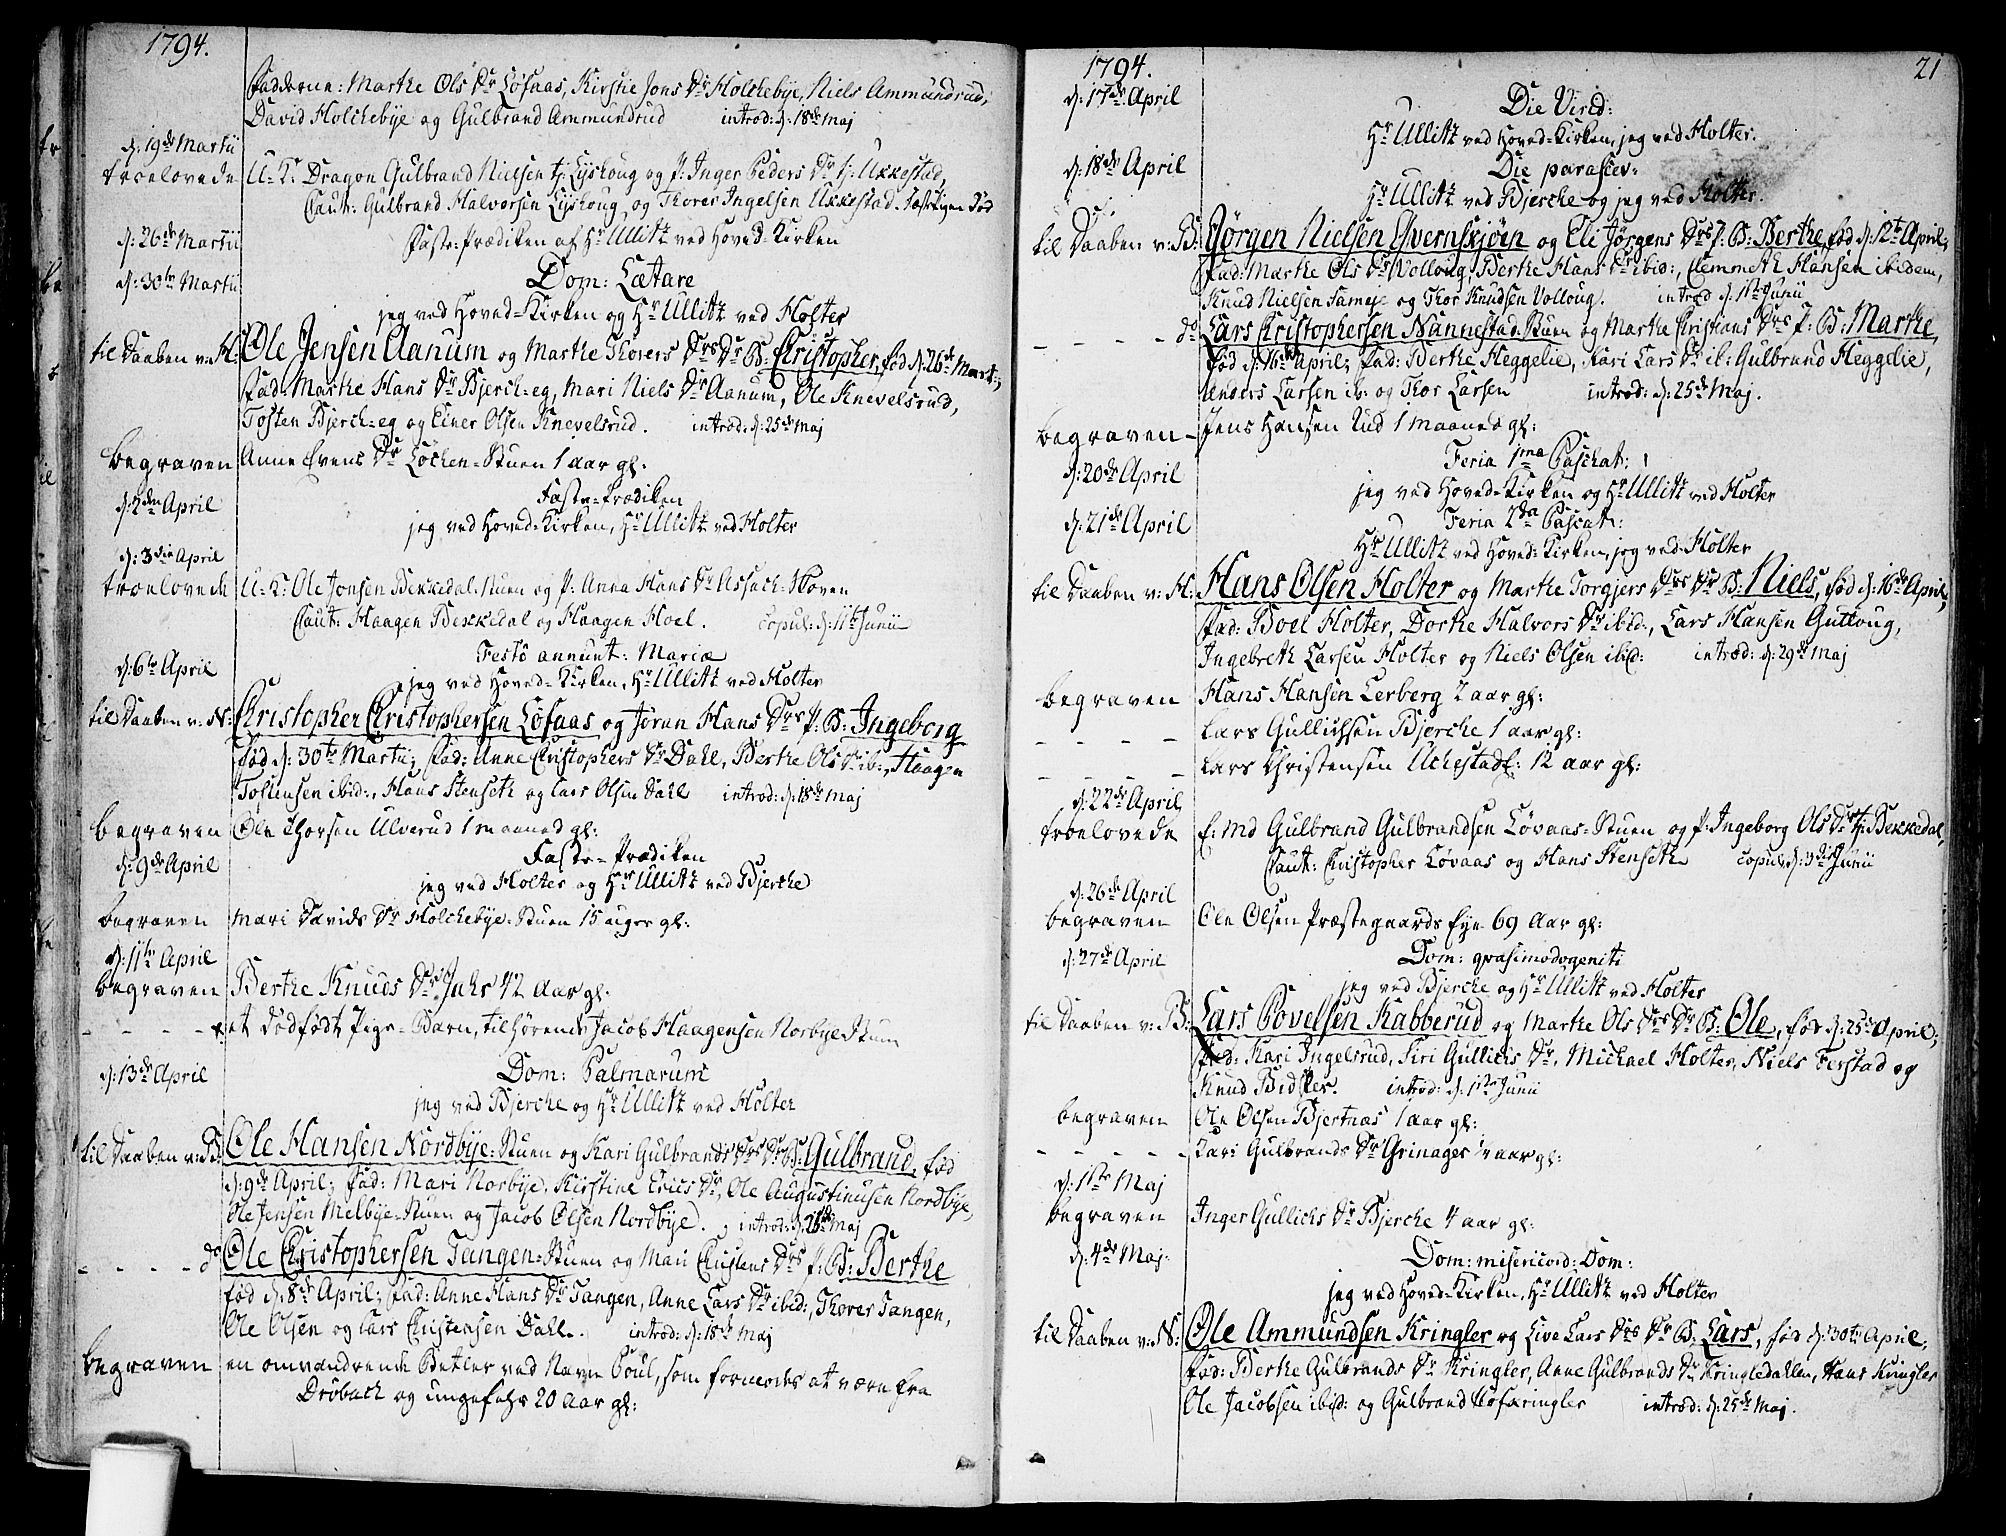 1794.
Fadderne: Marthe Ols Dr Løfaas, Kirstie Jons Dr Holchebye, Niels Ammundrud,
David Holchebye og Gulbrand Ammundrud introd: d: 18de Maj
d: 19de Martii
troelovede U: K: Dragon Gulbrand Nielsen tj: Lyshoug og P: Inger Peders Dr tj: Ukkestad,
Caut: Gulbrand Halvorsen Lyshoug, og Thorer Ingelsen Ukkestad.
d: 26de Martii Faste-Prædiken af Hr Ullitz ved Hoved-Kirken
d: 30te Martii Dom: Lætare
jeg ved Hoved-Kirken og Hr Ullitz ved Holter
til Daaben v: H: Ole Jensen Aanum og Marthe Thorers Drs Dr B: Christopher, fød d: 26de Mart:,
Fad: Marthe Hans Dr Bjerch-eg, Mari Niels Dr Aanum, Ole Knevelsrud,
Tosten Bjerch-eg og Einer Olsen Knevelsrud. introd: d: 25de Maj
begraven Anne Evens Dr Løchen-Stuen 1 aar gl:
d: 2den April Faste-Prædiken
jeg ved Hoved-Kirken, Hr Ullitz ved Holter
d: 3die April
troelovede U: K: Ole Jonsen Bekkedal-Stuen og P: Anna Hans Dr Assach-Hoven
Caut: Haagen Bekkedal og Haagen Hoel. copul: d: 11te Junii
Festo annunt: Mariæ
d: 6te April jeg ved Hoved-Kirken, Hr Ullitz ved Holter
til Daaben v: N: Christopher Christophersen Løfaas og Jøran Hans Drs P: B: Ingeborg
fød d: 30te Martii; Fad: Anne Christophers Dr Dahl, Berthe Ols Dr ib:, Haagen
Tostensen ibid:, Hans Stenseth og Lars Olsen Dahl introd: d: 18de Maj
begraven Ole Thorsen Ulverud 1 maaned gl:
d: 9de April Faste-Prædiken
jeg ved Holter og Hr Ullitz ved Bjerche
begraven Mari Davids Dr Holchebye-Stuen 15 uger gl:
d: 11te April
begraven Berthe Knuds Dr Juhs 42 aar gl:
- - - - et dødfødt Pige-Barn, tilhørende Jacob Haagensen Norbye Stuen
d: 13de April Dom: Palmarum
jeg ved Bjerche og Hr Ullitz ved Holter
til Daaben v: B: Ole Hansen Nordbye-Stuen og Kari Gulbrands Drs Dr B: Gulbrand, fød
d: 9de April; Fad: Mari Norbye, Kirstine Erics Dr, Ole Augustinusen Nordbye,
Ole Jensen Melbye-Stuen og Jacob Olsen Nordbye. introd: d: Maj
- - - - do Ole Christophersen Tangen-Stuen og Mari Christens Drs P: B: Berthe
fød d: 8de April; Fad: Anne Hans Dr Tangen, Anne Lars Dr ibid:, Thorer Tangen,
Ole Olsen og Lars Christensen Dahl. introd: d: 18de Maj
begraven en omvandrende Betler ved Navn Poul, som formodes at være fra
Drøbach og ungefehr 20 Aar gl:
1794. 21
d: 17de April Die Virid:
Hr Ullitz ved Hoved-Kirken, jeg ved Holter.
d: 18de April Die parascev:
Hr Ullitz ved Bjerche og jeg ved Holter.
til Daaben v: B: Jørgen Nielsen Qvernsjøen og Eli Jørgens Drs P: B: Berthe, fød d: 12te April;
Fad: Marthe Ols Dr Volloug, Berthe Hans Dr ibid:, Clemmeth Hansen ibidem,
Knud Nielsen Sameje og Thor Knudsen Volloug. introd d: 1ste Junii
- - - - do Lars Christophersen Nannestad-Stuen og Marthe Christians Drs P: B: Marthe,
fød d: 16de April; Fad: Berthe Heggelie, Kari Lars Dr ib: Gulbrand Heggelie,
Anders Larsen ib: og Thor Larsen introd: d: 25de Maj.
begraven - Jens Hansen Rud 1 maaned gl:
d: 20de April Feria 1ma Paschat:
jeg ved Hoved-Kirken og Hr Ullitz ved Holter
d: 21de April Feria 2da Pascat:
Hr Ullitz ved Hoved-Kirken, jeg ved Holter
til Daaben v: H: Hans Olsen Holter og Marthe Torgjers Drs Dr B: Niels, fød d: 16de April,
Fad: Boel Holter, Dorthe Halvors Dr ibid:, Lars Hansen Guttoug,
Ingebreth Larsen Holter og Niels Olsen ibid: introd: d: 29de Maj
begraven Hans Hansen Lerberg 2 aar gl:
- - - - Lars Gullichsen Bjerche 1 aar gl:
- - - - Lars Christensen Uchestad 12 aar gl:
d: 22de April
troelovede E: Md Gulbrand Gulbrandsen Løvaas-Stuen og P: Ingeborg Ols Dr tj: Bekkedal,
Caut: Christopher Løvaas og Hans Stenseth copul: d: 3die Junii
d: 26de April
begraven Ole Olsen Præstegaards Eye 69 Aar gl:
d: 27de April Dom: qvasimodogeniti
jeg ved Bjerche og Hr Ullitz ved Holter
til Daaben v: B: Lars Povelsen Rabberud og Marthe Ols Drs Dr B: Ole, fød d: 25de April;
Fad: Kari Ingelsrud, Siri Gullichs Dr, Michael Holter, Niels Ferstad og
Knud Bidsler. introd: d: 1ste Junii
begraven Ole Olsen Bjertnæs 1 aar gl:
- - - - - Kari Gulbrands Dr Grinager aar gl:
d: 1ste Maj
begraven Inger Gullichs Dr Bjerche 4 aar gl:
d: 4de Maj. Dom: misericord: Dom:
jeg ved Hoved-Kirken, Hr Ullitz ved Holter
til Daaben v: N: Ole Ammundsen Kringler og Live Lars Drs Dr B: Lars, fød d: 30te April;
Fad: Berthe Gulbrands Dr Kringler, Anne Gulbrands Dr Kringledahlen, Hans Kringler
Ole Jacobsen ibid: og Gulbrand introd: d: 25de Maj.